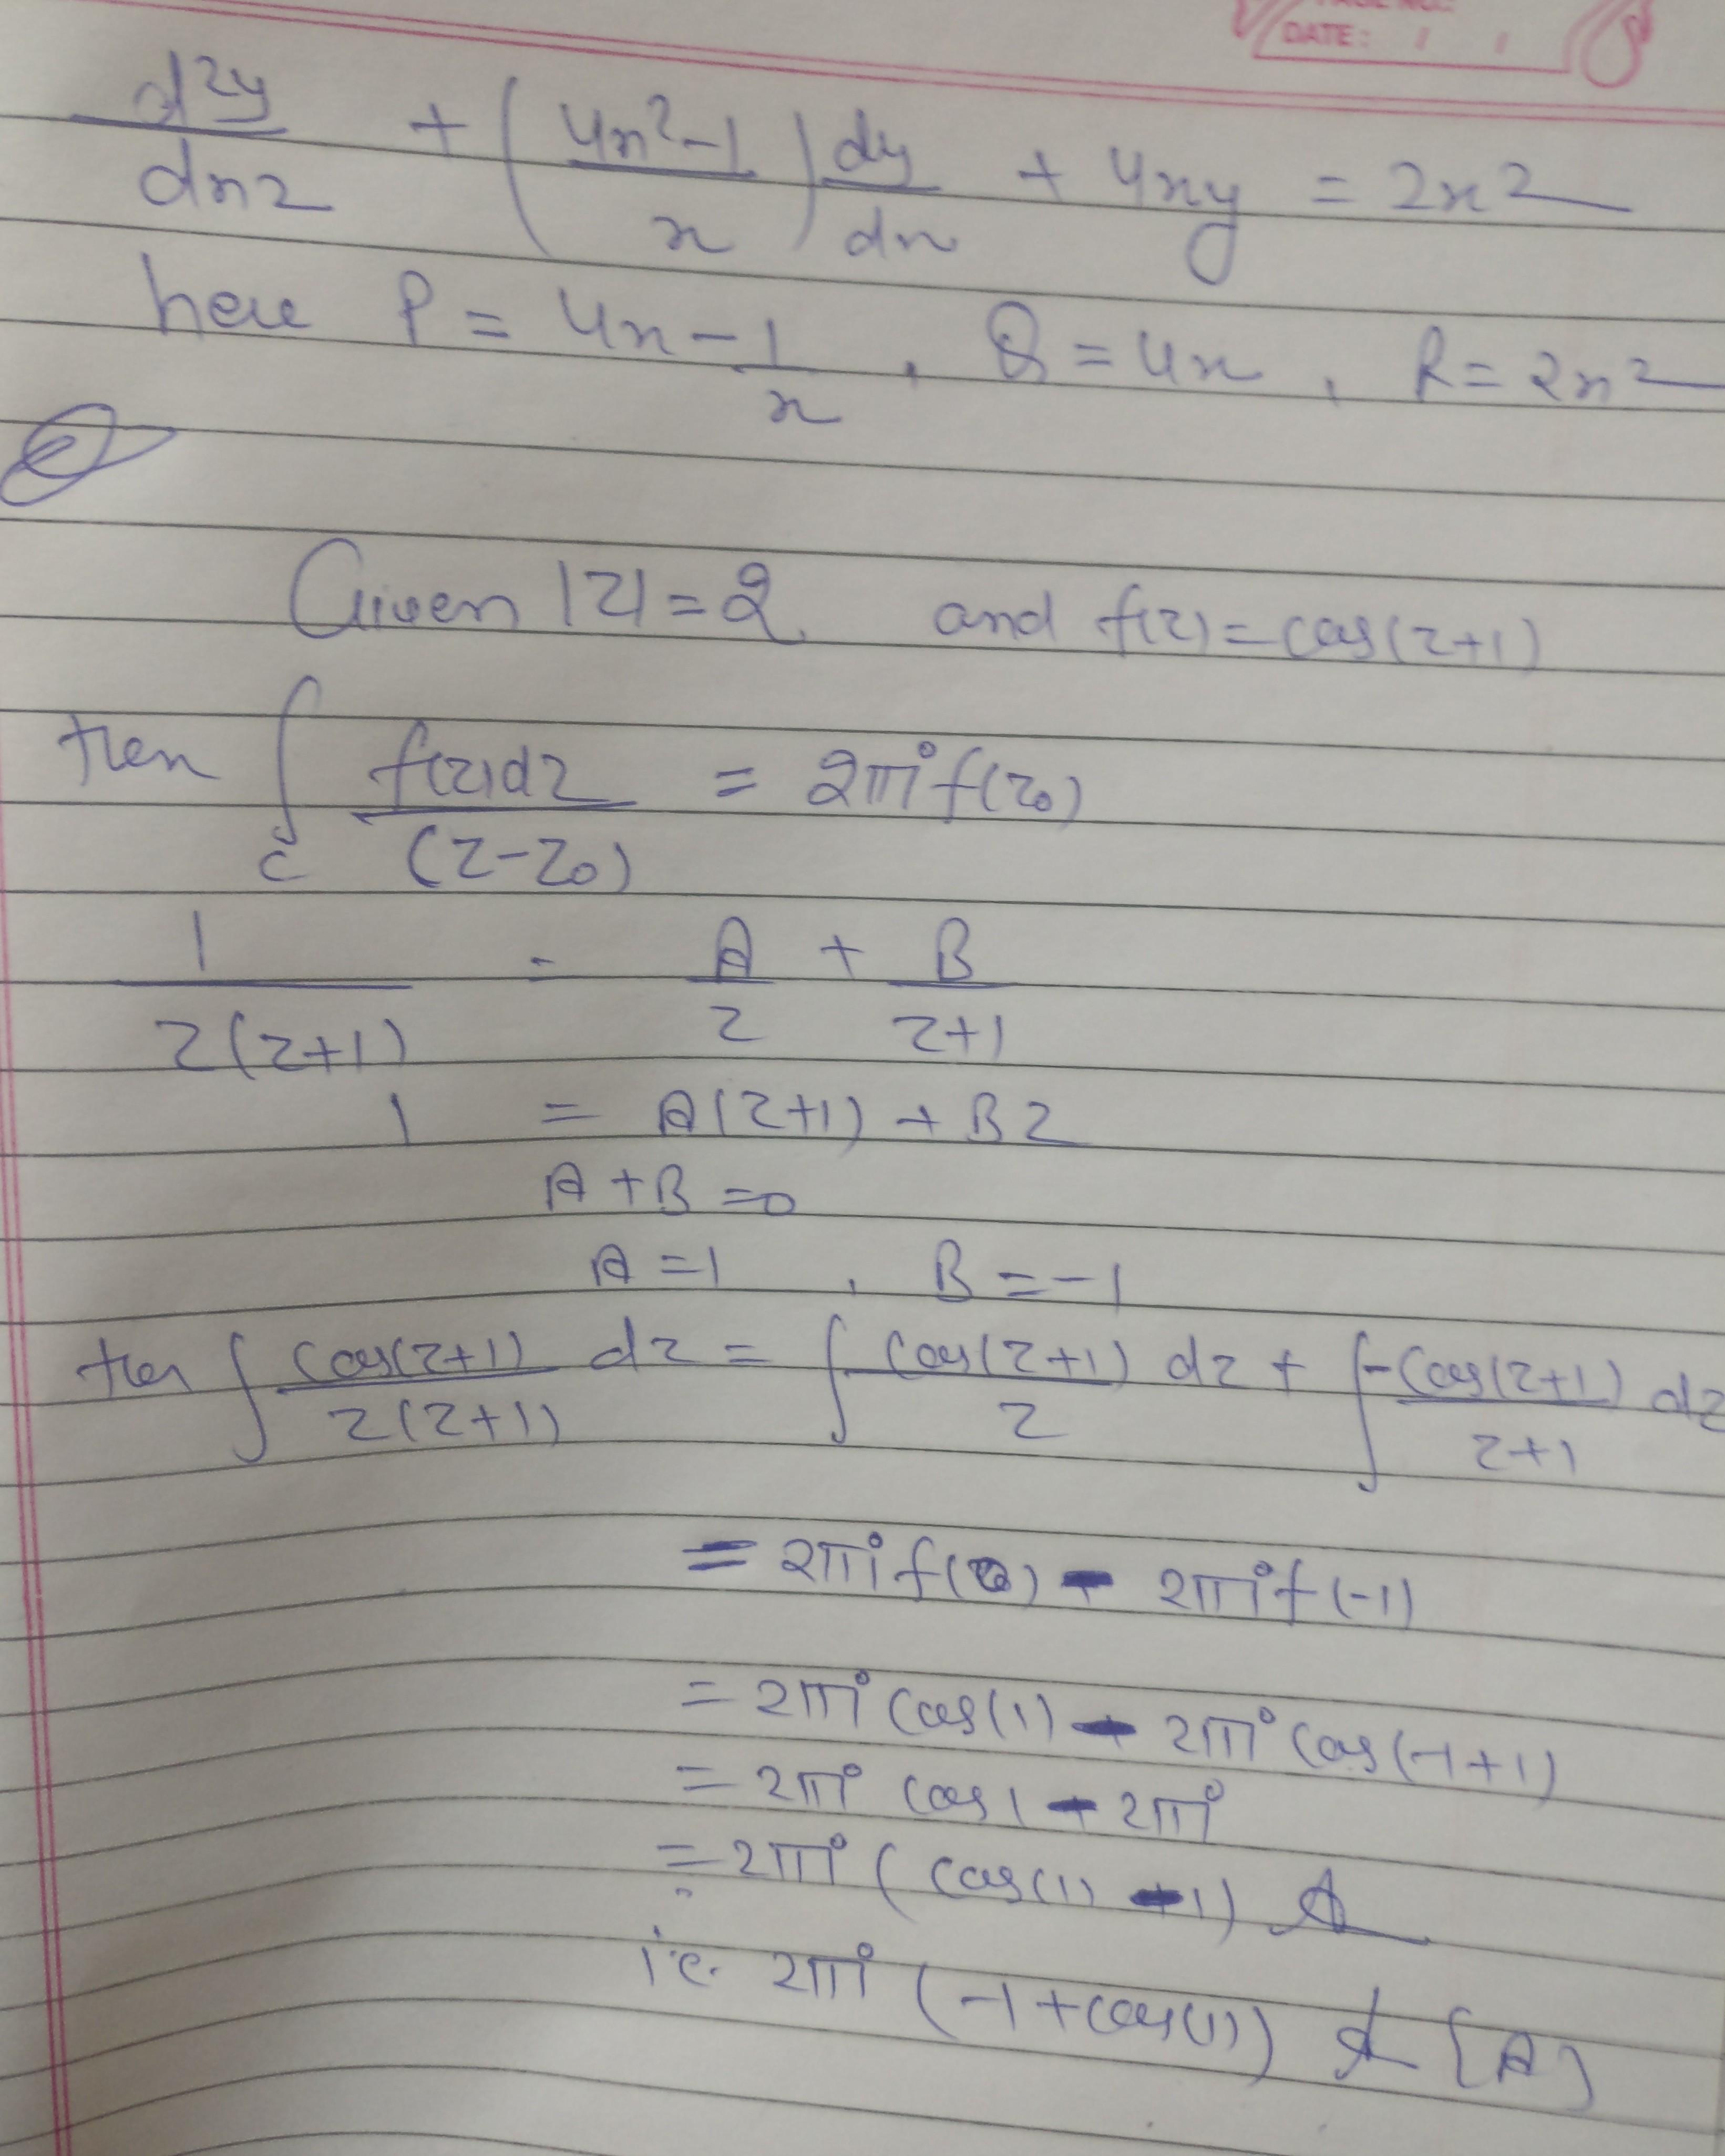 PAGE NO.:
DATE: / /
d²y/dx2 + (4x²-1/x) dy/dx + 4xy = 2x²
here P = 4x - 1/x , Q = 4x , R = 2x²
Given |z| = 2 and f(z) = cos(z+1)
then ∫c f(z)dz/(z-z₀) = 2πi f(z₀)
1/z(z+1) = A/z + B/z+1
1 = A(z+1) + Bz
A + B = 0
A = 1 , B = -1
then ∫ cos(z+1)/z(z+1) dz = ∫ cos(z+1)/z dz + ∫ -cos(z+1)/z+1 dz
= 2πi f(0) - 2πi f(-1)
= 2πi cos(1) - 2πi cos(-1+1)
= 2πi cos 1 - 2πi
= 2πi (cos(1) - 1) A
i.e. 2πi (-1 + cos(1)) A [A]